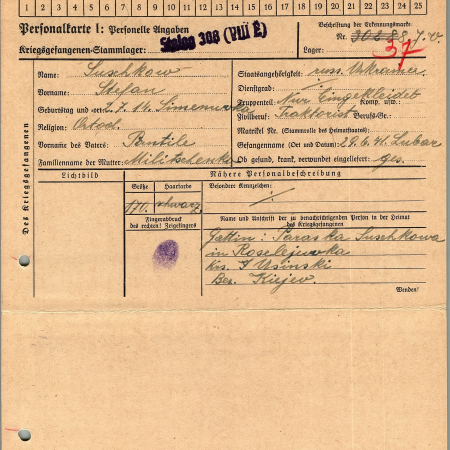 1 2 3 4 5 6 7 8 9 10 11 12 13 14 15 16 17 18 19 20 21 22 23 24 25
Personalkarte I: Personelle Angaben
Kriegsgefangenen-Stammlager: Stalag 308 (VIII E)
Beschriftung der Erkennungsmarke
Nr.
Lager: 37
Des Kriegsgefangenen
Name: Suschkow
Vorname: Stefan
Geburtstag und -ort: 2.7.14.
Religion: Ortod.
Vorname des Vaters: Pantile
Familienname der Mutter: Militschenko
Staatsangehörigkeit: russ. Ukraine
Dienstgrad:
Truppenteil: Nur Eingekleidet Komp. usw.:
Zivilberuf: Traktorist Berufs-Gr.:
Matrikel Nr. (Stammrolle des Heimatstaates):
Gefangennahme (Ort und Datum): 29.6.41. Lubar
Ob gesund, krank, verwundet eingeliefert: ges.
Lichtbild
Nähere Personalbeschreibung
Größe Haarfarbe
170. schwarz
Besondere Kennzeichen:
Fingerabdruck
des rechten! Zeigefingers
Name und Anschrift der zu benachrichtigenden Person in der Heimat
des Kriegsgefangenen
Gattin: Paraska Suschkowa
in Roselejuvka
Krs. Ysinski
Bez. Kiejev.
Wenden!